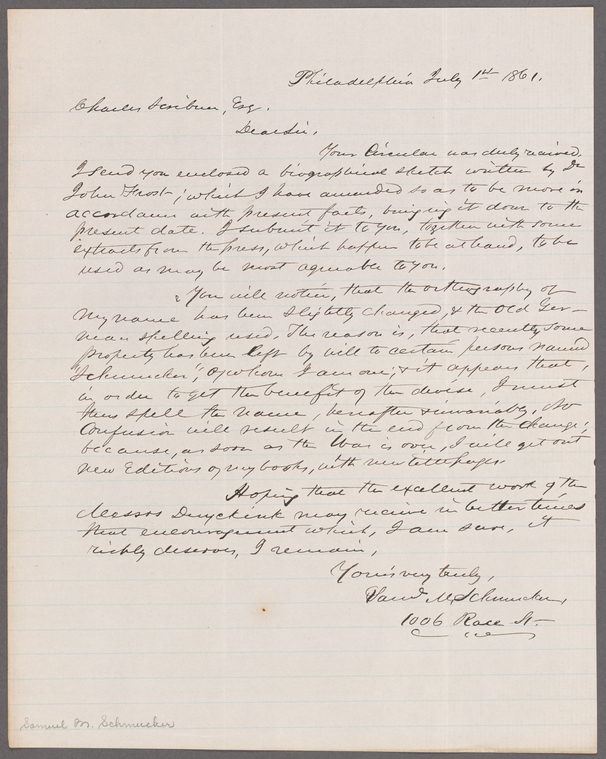 Philadelphia July 1st 1861.
Charles Scribner, Esq.
Dear Sir,
Your Circular was duly received.
I send you enclosed a biographical sketch written by Dr
John Frost; which I have amended so as to be more in
accordance with present facts, bringing it down to the
present date. I submit it to you, together with some
extracts from the press, which happen to be at hand, to be
used as may be most agreeable to you.
You will notice, that the orthography of
my name has been slightly changed, & the Old Ger-
man spelling used. The reason is, that recently some
property has been left by will to certain persons named
"Schmucker", of whom I am one; & it appears that,
in order to get the benefit of the devise, I must
thus spell the name, hereafter & invariably. No
Confusion will result in the end from the change;
because, as soon as the War is over, I will get out
new Editions of my books, with new title pages.
Hoping that the excellent work of the
Messrs Duyckink may receive in better times
that encouragement which, I am sure, it
richly deserves, I remain,
Yours very truly,
Saml M. Schmucker,
1006 Race St.
Samuel M. Schmucker